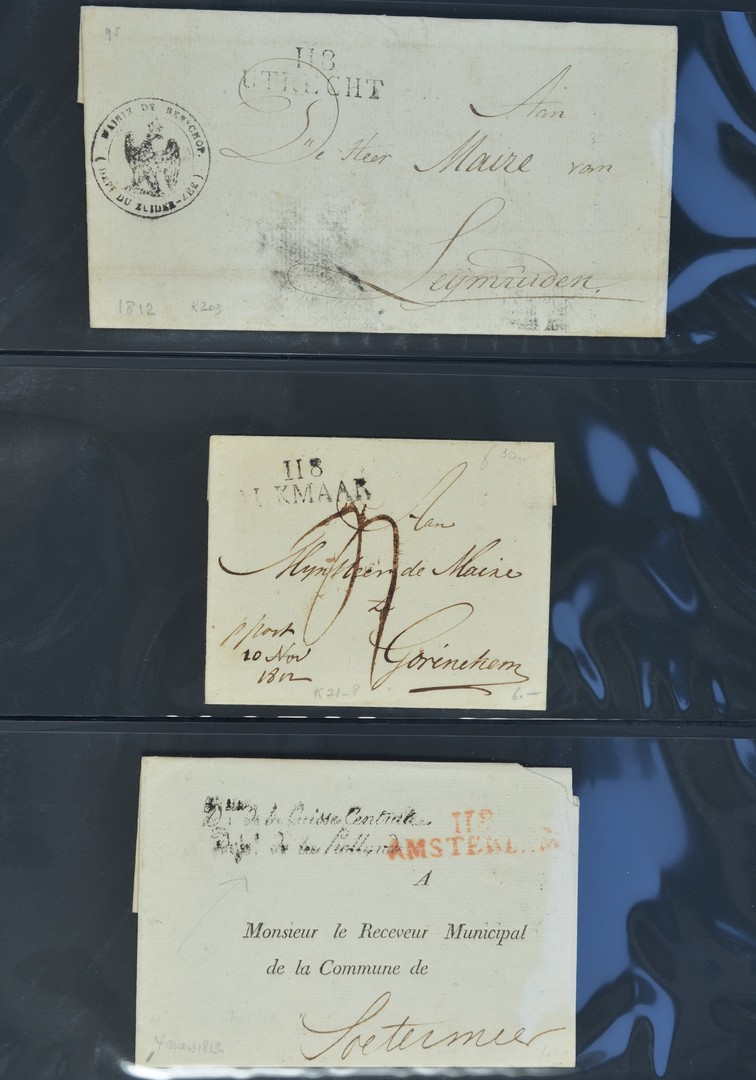 95
118
UTRECHT
MAIRIE DE BENSCHOP.
(DEPT DU ZUIDER-ZEE)
Aan
De Heer Maire van
Leymuiden.
1812 K203
118
ALKMAAR
30
Aan
Mijn Heer de Maire
te
Gorinchem
p post
10 Nov
1812
K21-P
6.-
de la Caisse Centrale
de la Hollande
118
AMSTERDAM
A
Monsieur le Receveur Municipal
de la Commune de
Soetermeer
4 mars 1813